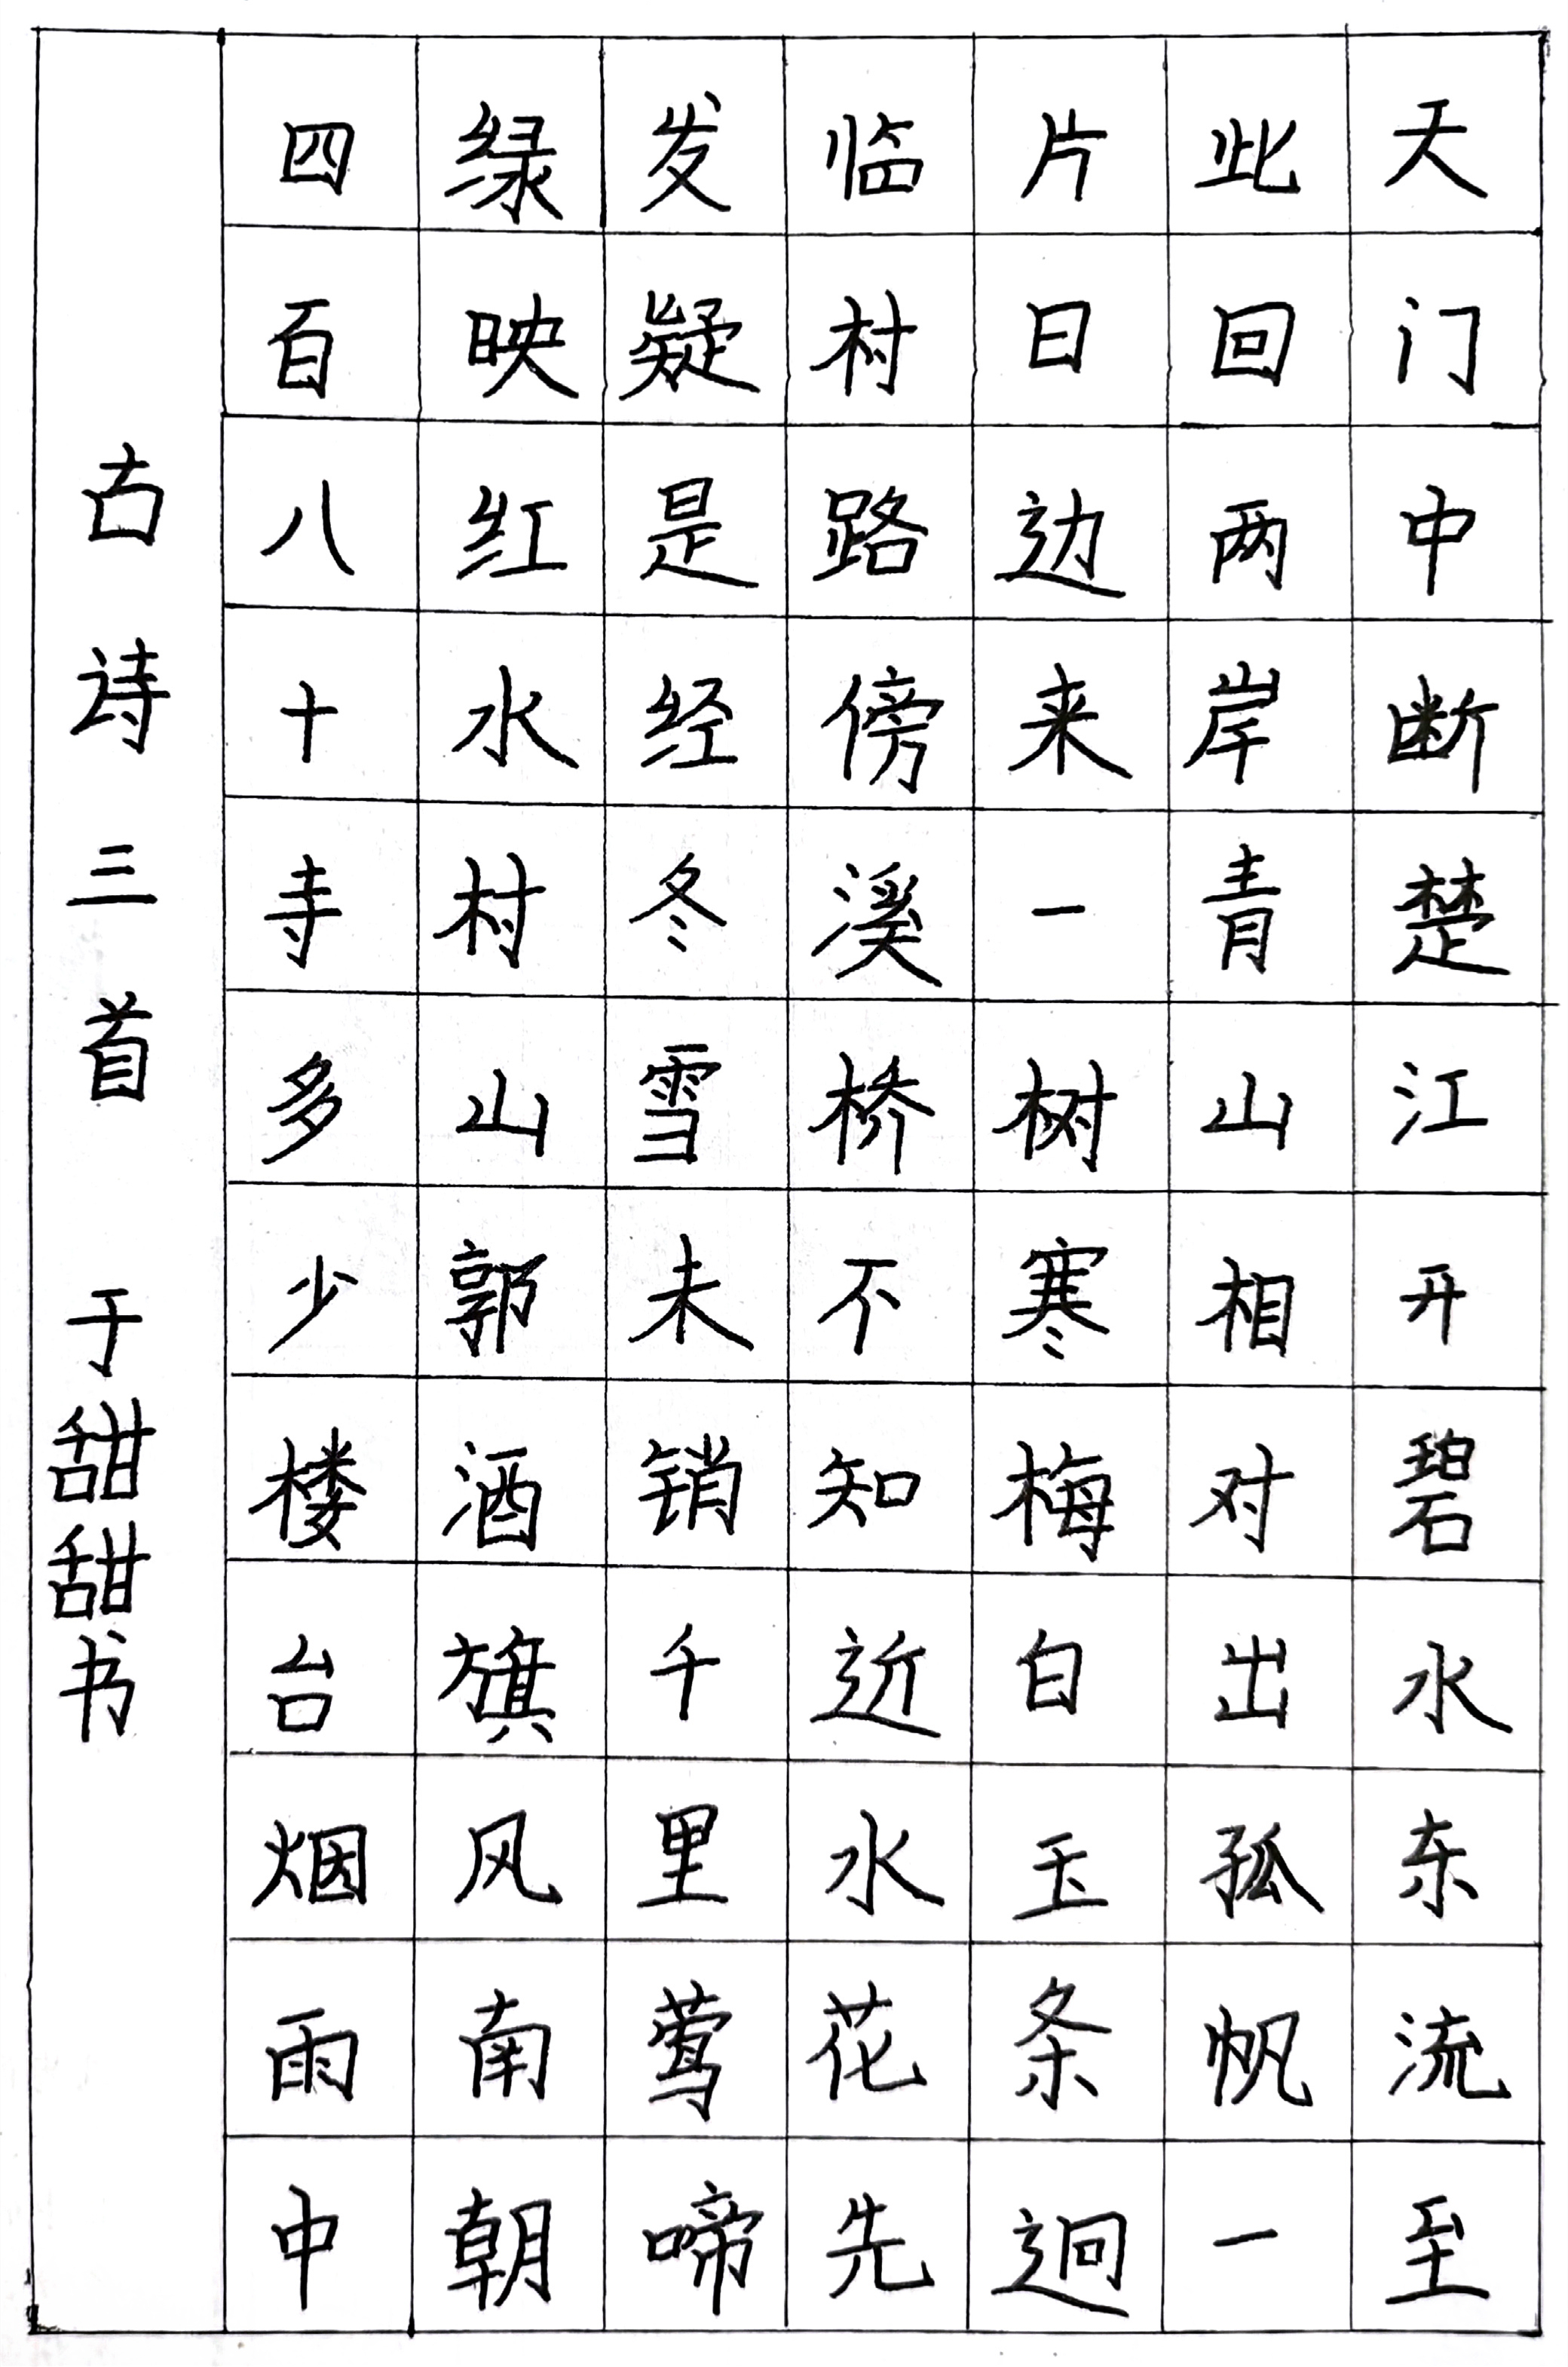 天门中断楚江开碧水东流至
此回两岸青山相对出孤帆一
片日边来一树寒梅白玉条迥
临村路傍溪桥不知近水花先
发疑是经冬雪未销千里莺啼
绿映红水村山郭酒旗风南朝
四百八十寺多少楼台烟雨中
古诗三首 于甜甜书